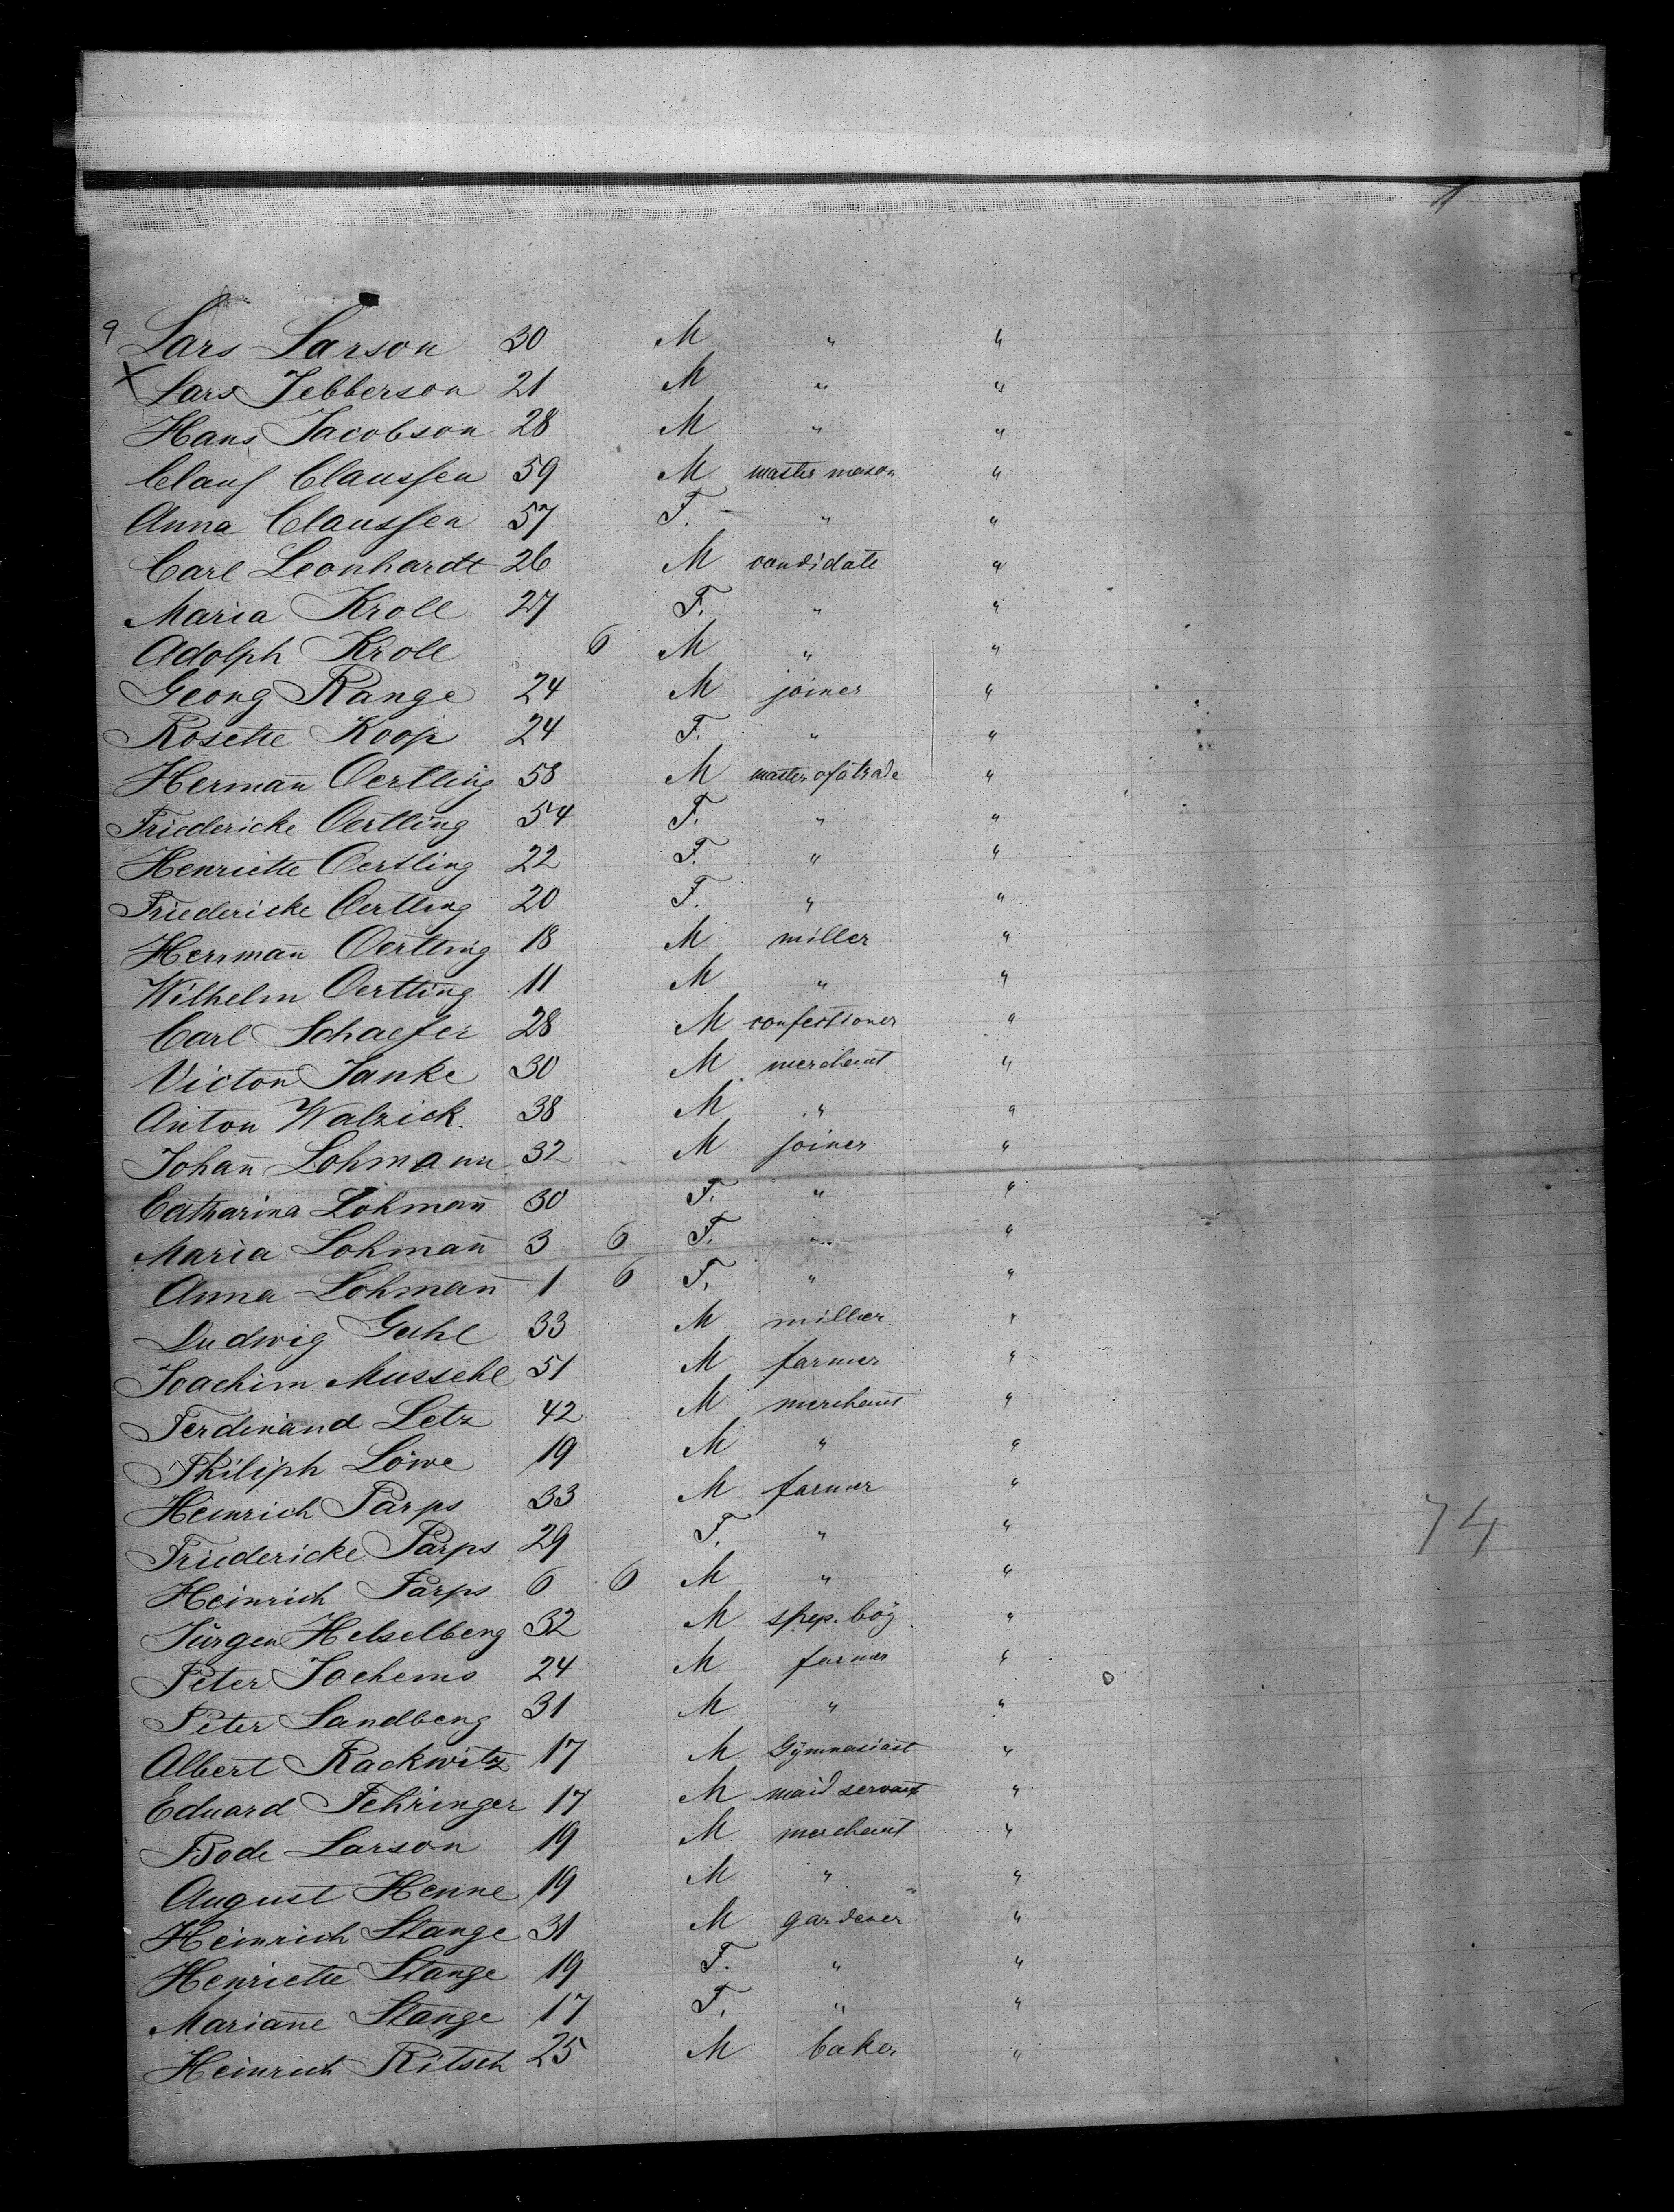 9 Lars Larson 30 M " "
X Lars Jebberson 21 M " "
Hans Jacobson 28 M " "
Clauſ Clausſen 59 M master mason "
Anna Clausſen 57 F. - " "
Carl Leonhardt 26 M candidate "
Maria Kroll 27 F. " "
Adolph Kroll 6 M " "
Georg Range 24 M joiner "
Rosette Koop 24 F. " "
Hermañ Oertling 58 M master of a trade "
Friedericke Oertling 54 F. " "
Henriette Oertling 22 F. " "
Friedericke Oertling 20 F. " "
Herrmañ Oertling 18 M miller "
Wilhelm Oertling 11 M " "
Carl Schaefer 28 M confectioner "
Victor Janke 30 M merchant "
Anton Walzick. 38 M " "
Johañ Lohmann 32 M joiner "
Catharina Lohmañ 30 F. " "
Maria Lohmañ 3 6 F. " "
Anna Lohmañ 1 6 F. " "
Ludwig Gahl 33 M miller "
Joachim Mussehl 51 M farmer "
Ferdinand Letz 42 M merchant "
Philiph Löwe 19 M " "
Heinrich Parps 33 M farmer "
Friedericke Parps 29 F. " "
Heinrich Parps 6 6 M " "
Jürgen Helselberg 32 M shep. boy "
Peter Jochems 24 M farmer "
Peter Sandberg 31 M " "
Albert Rackwitz 17 M Gÿmnasiast "
Eduard Fehringer 17 M maid servant "
Bode Larson 19 M merchant "
August Henne 19 M " "
Heinrich Stange 31 M gardener "
Henriette Stange 19 F. " "
Mariañe Stange 17 F. " "
Heinrich Ritsch 25 M baker "
74